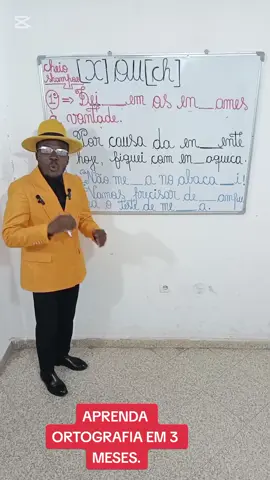 CapCut
cheio
shampoo
[X] OU [ch]
1ª) => Dei___em os en__ames
à vontade.
Por causa da en___ente
hoje, fiquei com en__aqueca.
Não me__a no abaca__i!
Vamos precisar de ___ampu
a o teste de me___a.
APRENDA
ORTOGRAFIA EM 3
MESES.